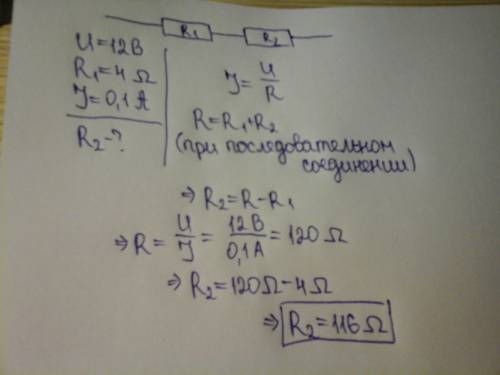 R₁ R₂
U=12В
R₁=4Ω
J=0,1А
R₂-?
J=U/R
R=R₁+R₂
(при последовательном
соединении)
⇒R₂=R-R₁
⇒R=U/J=12В/0,1А=120Ω
⇒R₂=120Ω-4Ω
⇒R₂=116Ω